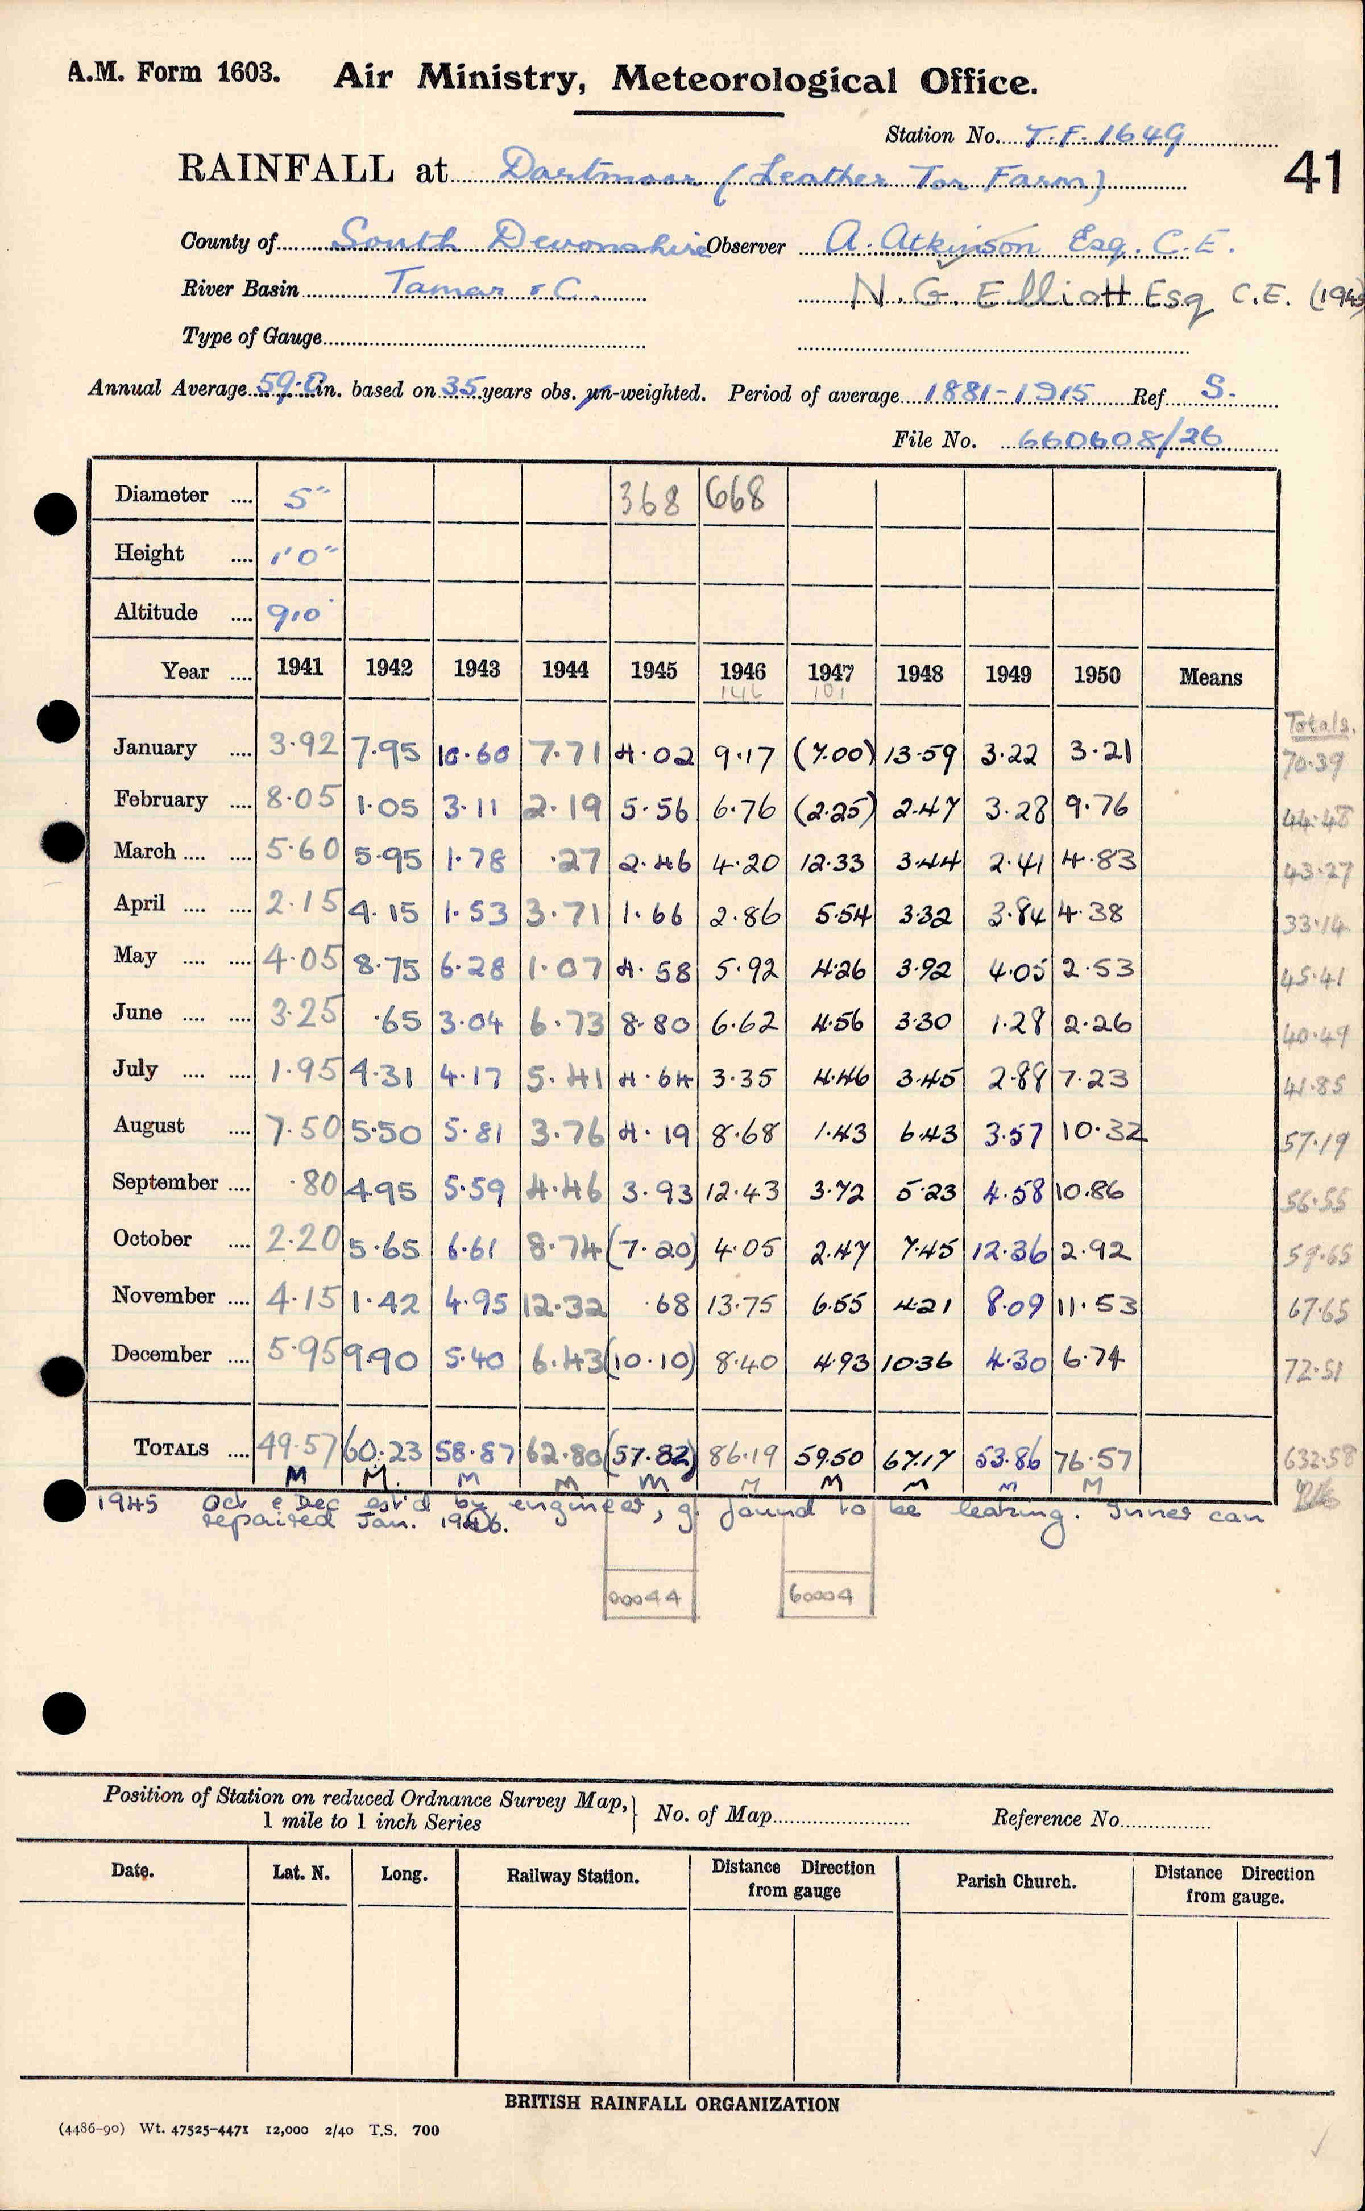 A.M. Form 1603. Air Ministry, Meteorological Office.
Station No. T.F. 1649
RAINFALL at Dartmoor (Leather Tor Farm) 41
County of South Devonshire Observer A. Atkinson Esq. C.E.
River Basin Tamar &C. N. G. Elliott Esq C.E.
Type of Gauge
Annual Average 59.0 in. based on 35 years obs. un-weighted. Period of average 1881-1915 Ref S.
File No. 660608/26
Diameter .... 5" 368 668
Height .... 1'0"
Altitude .... 910'
Year .... 1941 1942 1943 1944 1945 1946 1947 1948 1949 1950 Means
146 101
Totals.
January .... 3.92 7.95 10.60 7.71 4.02 9.17 (7.00) 13.59 3.22 3.21 70.39
February .... 8.05 1.05 3.11 2.19 5.56 6.76 (2.25) 2.47 3.28 9.76 44.48
March .... .... 5.60 5.95 1.78 .27 2.46 4.20 12.33 3.44 2.41 4.83 43.27
April .... .... 2.15 4.15 1.53 3.71 1.66 2.86 5.54 3.32 3.84 4.38 33.14
May .... .... 4.05 8.75 6.28 1.07 4.58 5.92 4.26 3.92 4.05 2.53 45.41
June .... .... 3.25 .65 3.04 6.73 8.80 6.62 4.56 3.30 1.28 2.26 40.49
July .... .... 1.95 4.31 4.17 5.41 4.64 3.35 4.46 3.45 2.88 7.23 41.85
August .... 7.50 5.50 5.81 3.76 4.19 8.68 1.43 6.43 3.57 10.32 57.19
September .... .80 4.95 5.59 4.46 3.93 12.43 3.72 5.23 4.58 10.86 56.55
October .... 2.20 5.65 6.61 8.74 (7.20) 4.05 2.47 7.45 12.36 2.92 59.65
November .... 4.15 1.42 4.95 12.32 .68 13.75 6.55 4.21 8.09 11.53 67.65
December .... 5.95 9.90 5.40 6.43 (10.10) 8.40 4.93 10.36 4.30 6.74 72.51
TOTALS .... 49.57 60.23 58.87 62.80 (57.82) 86.19 59.50 67.17 53.86 76.57 632.58
M M. M M M M M M M M
1945 Oct & Dec est'd by engineer, g. found to be leaking. Inner can
repaired Jan. 1946.
00044 60004
Position of Station on reduced Ordnance Survey Map, No. of Map Reference No.
1 mile to 1 inch Series
Date. Lat. N. Long. Railway Station. Distance Direction Parish Church. Distance Direction
from gauge from gauge.
BRITISH RAINFALL ORGANIZATION
(4486-90) Wt. 47525-4471 12,000 2/40 T.S. 700